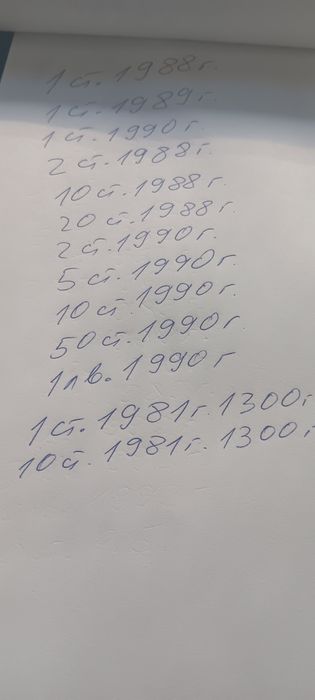 1 ст. 1988 г.
1 ст. 1989 г.
1 ст. 1990 г.
2 ст. 1988 г.
10 ст. 1988 г.
20 ст. 1988 г.
2 ст. 1990 г.
5 ст. 1990 г.
10 ст. 1990 г.
50 ст. 1990 г.
1 лв. 1990 г
1 ст. 1981 г. 1300 г
10 ст. 1981 г. 1300 г